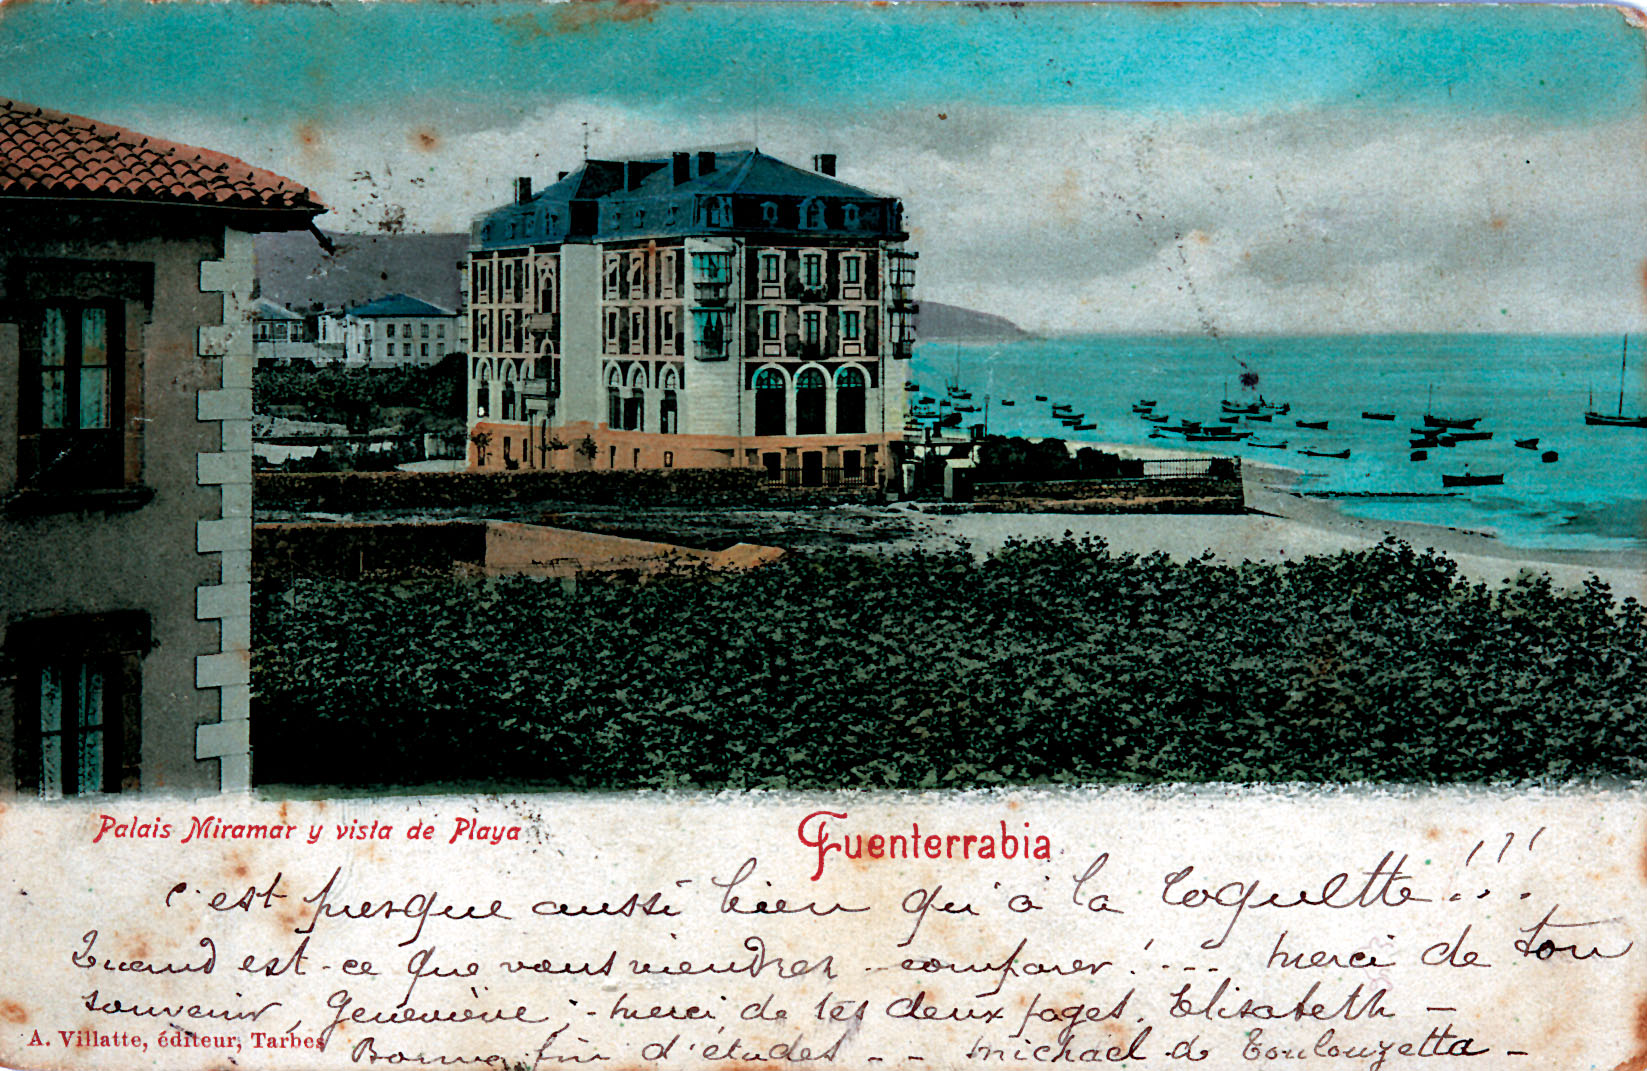 Palais Miramar y vista de Playa
Fuenterrabia
c'est presque aussi bien qu'à la Coquette!!!
Quand est-ce que vous viendrez comparer! --- merci de ton
souvenir, Geneviève; - merci de tes deux pages, Elisabeth -
A. Villatte, éditeur, Tarbes
Bonne fin d'études - - Michael de Toulouzette -